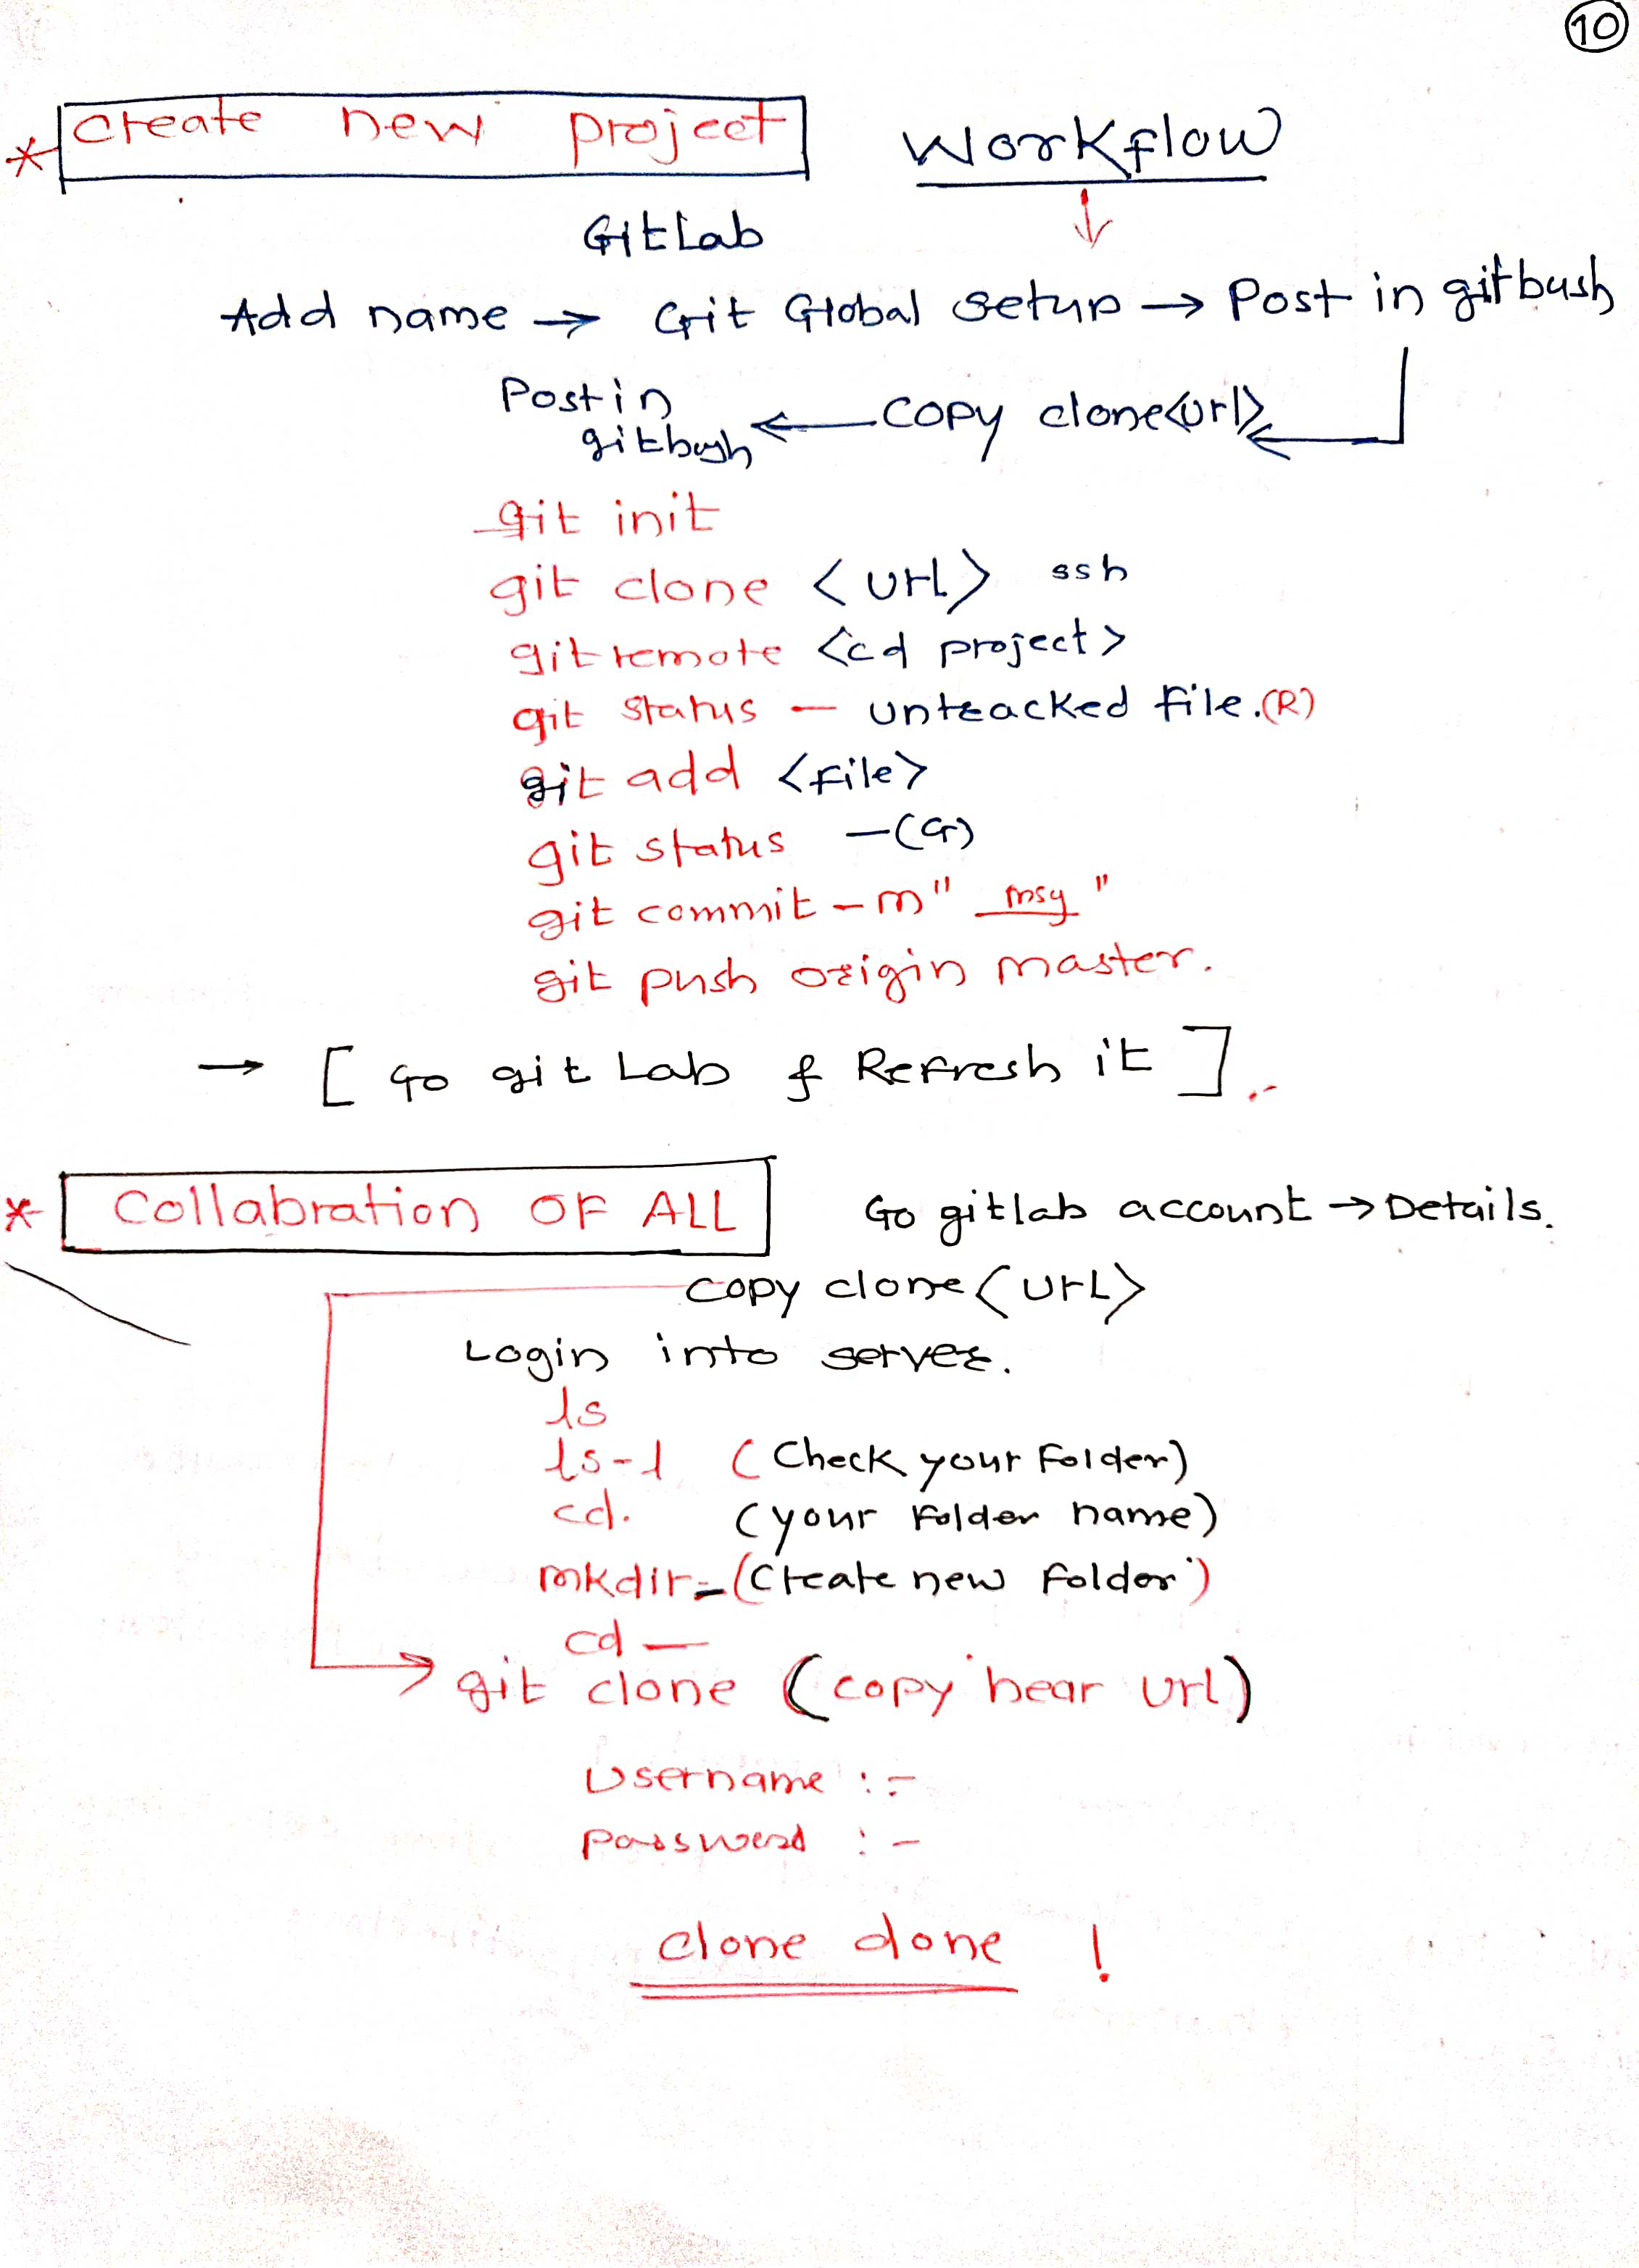 10
* Create new project Workflow
↓
GitLab
Add name → Git Global setup → Post in gitbush
Post in gitbush ← copy clone<url> ←
git init
git clone <url> ssh
git remote <cd project>
git status - untracked file.(R)
git add <file>
git status -(G)
git commit -m" msg "
git push origin master.
→ [ Go git Lab & Refresh it ].
* Collabration OF ALL Go gitlab account → Details.
copy clone <url>
Login into server.
ls
ls-l (Check your Folder)
cd. (your Folder name)
mkdir - (Create new Folder)
cd —
→ git clone (copy hear url)
Username :-
Password :-
clone done !